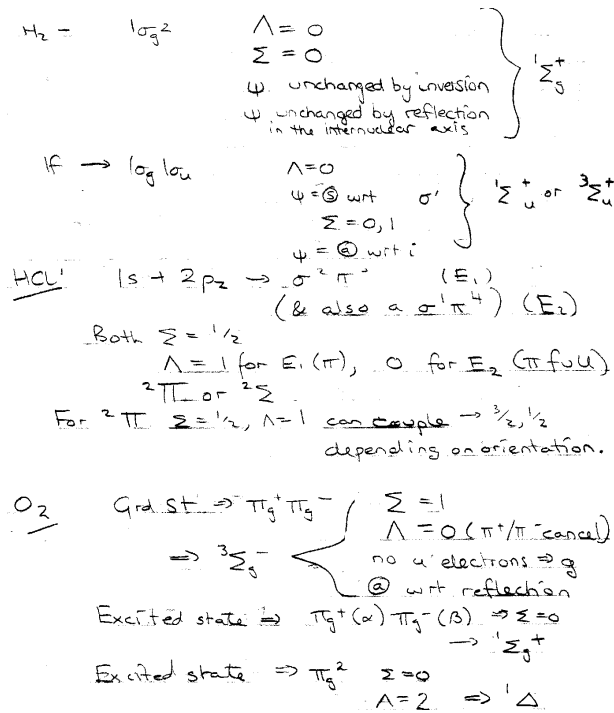 H₂ – 1σg² Λ = 0
Σ = 0
ψ unchanged by inversion
ψ unchanged by reflection
in the internuclear axis
¹Σg⁺
If → 1σg 1σu Λ=0
ψ = ⓢ wrt σ'
Σ = 0, 1
ψ = ⓐ wrt i
¹Σu⁺ or ³Σu⁺
HCL' 1s + 2pz → σ²π³ (E₁)
(& also a σ¹π⁴) (E₂)
Both Σ = 1/2
Λ = 1 for E₁(π), 0 for E₂ (π full)
²Π or ²Σ
For ²Π Σ = 1/2, Λ=1 can couple → 3/2, 1/2
depending on orientation.
O₂ Grd St ⇒ πg⁺ πg⁻
Σ = 1
Λ = 0 (π⁺/π⁻ cancel)
⇒ ³Σg⁻
no u electrons ⇒ g
ⓐ wrt reflection
Excited state ⇒ πg⁺(α) πg⁻(β) ⇒ Σ=0
→ ¹Σg⁺
Excited state ⇒ πg² Σ=0
Λ = 2 ⇒ ¹Δ